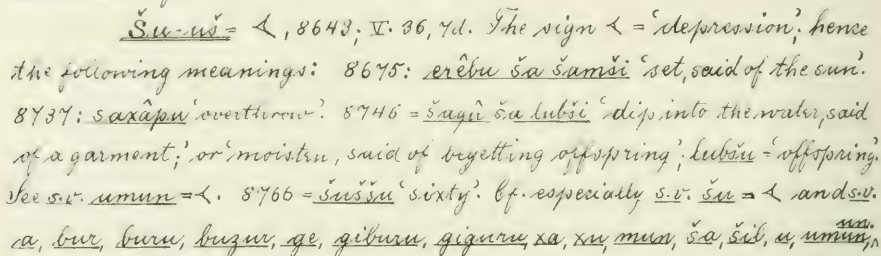 Šu-uš = 𒌋, 8643; V. 36, 7d. The sign 𒌋 = 'depression'; hence
the following meanings: 8675: erêbu ša šamši 'set, said of the sun'.
8737: saxâpu 'overthrow'. 8746 = šaqû ša lubši 'dip into the water, said
of a garment;' or 'moisten, said of begetting offspring'; lubšu = 'offspring'.
See s.v. umun = 𒌋. 8766 = šuššu 'sixty'. Cf. especially s.v. šu = 𒌋 and s.v.
a, bur, buru, buzur, ge, giburu, giguru, xa, xu, mun, šа, šil, u, umun, un.